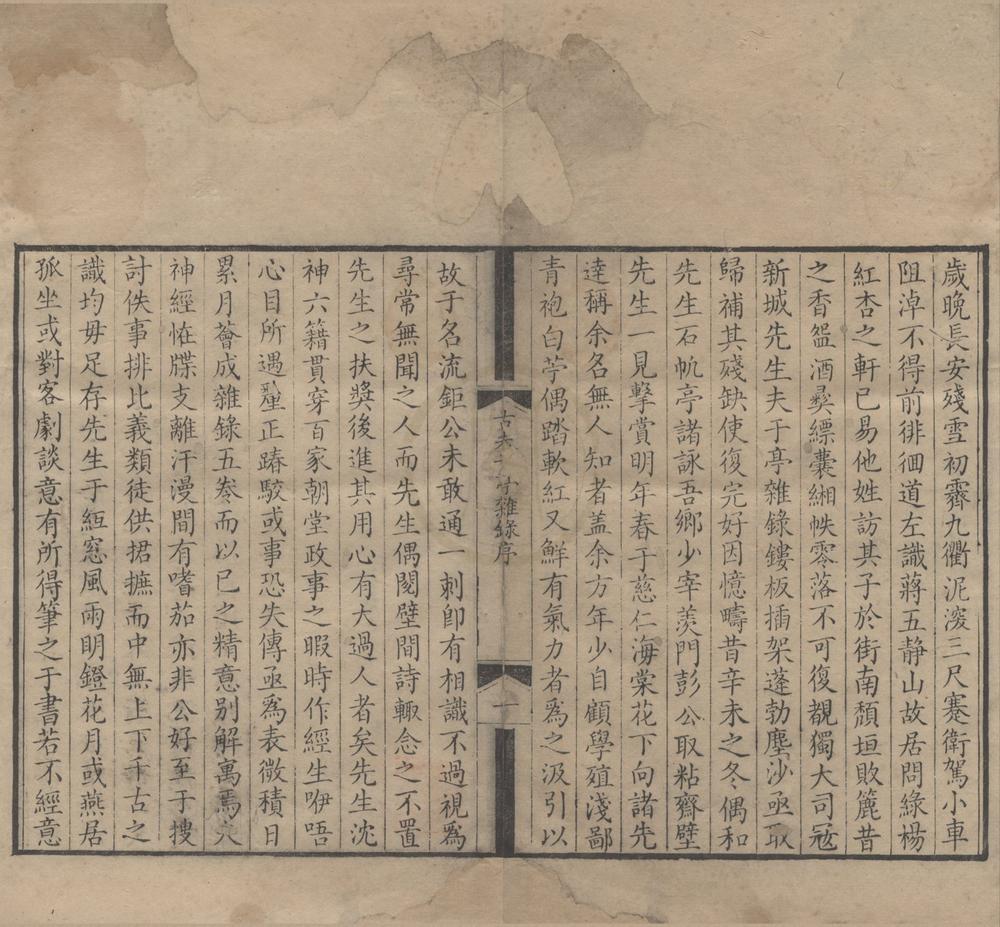 歲晚長安殘雪初霽九衢泥深三尺蹇衛駕小車
阻淖不得前徘徊道左識蔣五静山故居問綠楊
紅杏之軒已易他姓訪其子於街南頹垣敗簏昔
之香盌酒彜縹囊緗帙零落不可復覩獨大司寇
新城先生夫于亭雜錄鏤板插架蓬勃塵沙亟取
歸補其殘缺使復完好因憶疇昔辛未之冬偶和
先生石帆亭諸詠吾鄉少宰羨門彭公取粘齋壁
先生一見擊賞明年春于慈仁海棠花下向諸先
達稱余名無人知者盖余方年少自顧學殖淺鄙
青袍白苧偶踏軟紅又鮮有氣力者爲之汲引以
古夫于亭雜錄序
一
故于名流鉅公未敢通一刺卽有相識不過視爲
尋常無聞之人而先生偶閱壁間詩輙念之不置
先生之扶獎後進其用心有大過人者矣先生沈
神六籍貫穿百家朝堂政事之暇時作經生咿唔
心目所遇釐正踳駁或事恐失傳亟爲表微積日
累月薈成雜錄五卷而以己之精意別解寓焉夫
神經恠牒支離汗漫間有嗜茄亦非公好至于搜
討佚事排比義類徒供捃摭而中無上下千古之
識均毋足存先生于絙窓風雨明鐙花月或燕居
孤坐或對客劇談意有所得筆之于書若不經意